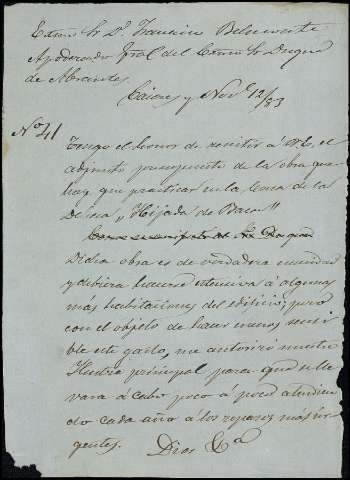 Exmo Sr Dn Francisco Belmonte
Apoderado Gral del Exmo Sr Duque
de Abrantes.
Cáceres y Nove 12/83
No 41
Tengo el honor de remitir á V.E. el
adjunto presupuesto de la obra que
hay que practicar en la casa de la
Dehesa "Hijada de Vaca"
Dicha obra es de verdadera necesidad
y debiera hacerse estensiva á algunas
más habitaciones del edificio; pero
con el objeto de hacer menos sensi
ble este gasto, me autorizó nuestro
Ilustre principal para que se lle
vara á cabo poco á poco atendien
do cada año á los reparos más ur
gentes. Dios &a